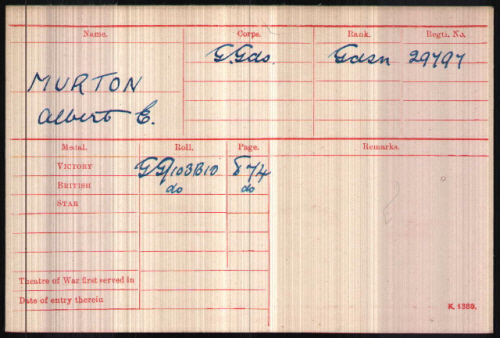 Name. Corps. Rank. Regtl. No.
G.Gds. Gdsn 29797
MURTON
Albert E.
Medal. Roll. Page. Remarks.
VICTORY GG/103B10 874
BRITISH do do
STAR
Theatre of War first served in
Date of entry therein
K. 1380.